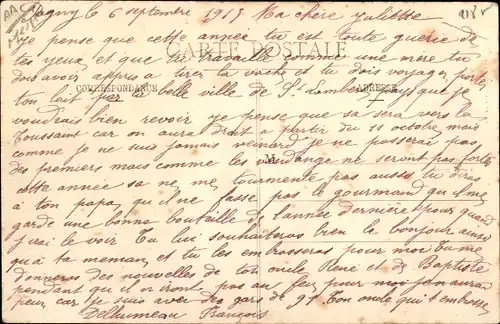 Lagny le 6 septembre 1915 Ma chère
Je pense que cette année tu est toute guerie de
CARTE POSTALE
tes yeux et que tu travaille comme une mère tu
dois avoir appris a tirer la vache et tu dois voyager porter
CORRESPONDANCE ADRESSE
ton lait par la belle ville de St Lambert que je
voudrais bien revoir je pense que sa sera vers la
Toussaint car on aura droit a partir du 11 octobre mais
comme je ne suis jamais veinard je ne passerai pas
des premiers mais comme les vendange ne seront pas fortes
cette année sa ne me tourmente pas aussi tu diras
à ton papa qu'il ne fasse pas le gourmand qu'il me
garde une bonne bouteille de l'année dernière pour quand
j'irai le voir Tu lui souhaiteras bien le bonjour ainsi
qu'a ta meman et tu les embrasseras pour moi tu me
donneras des nouvelles de ton oncle René et de Baptiste
pendent qu'il on iront pas au feu pour moi j'en aurai
peur car je suis avec des gars de 91 Ton oncle qui t'embrasse
Delhumeau François